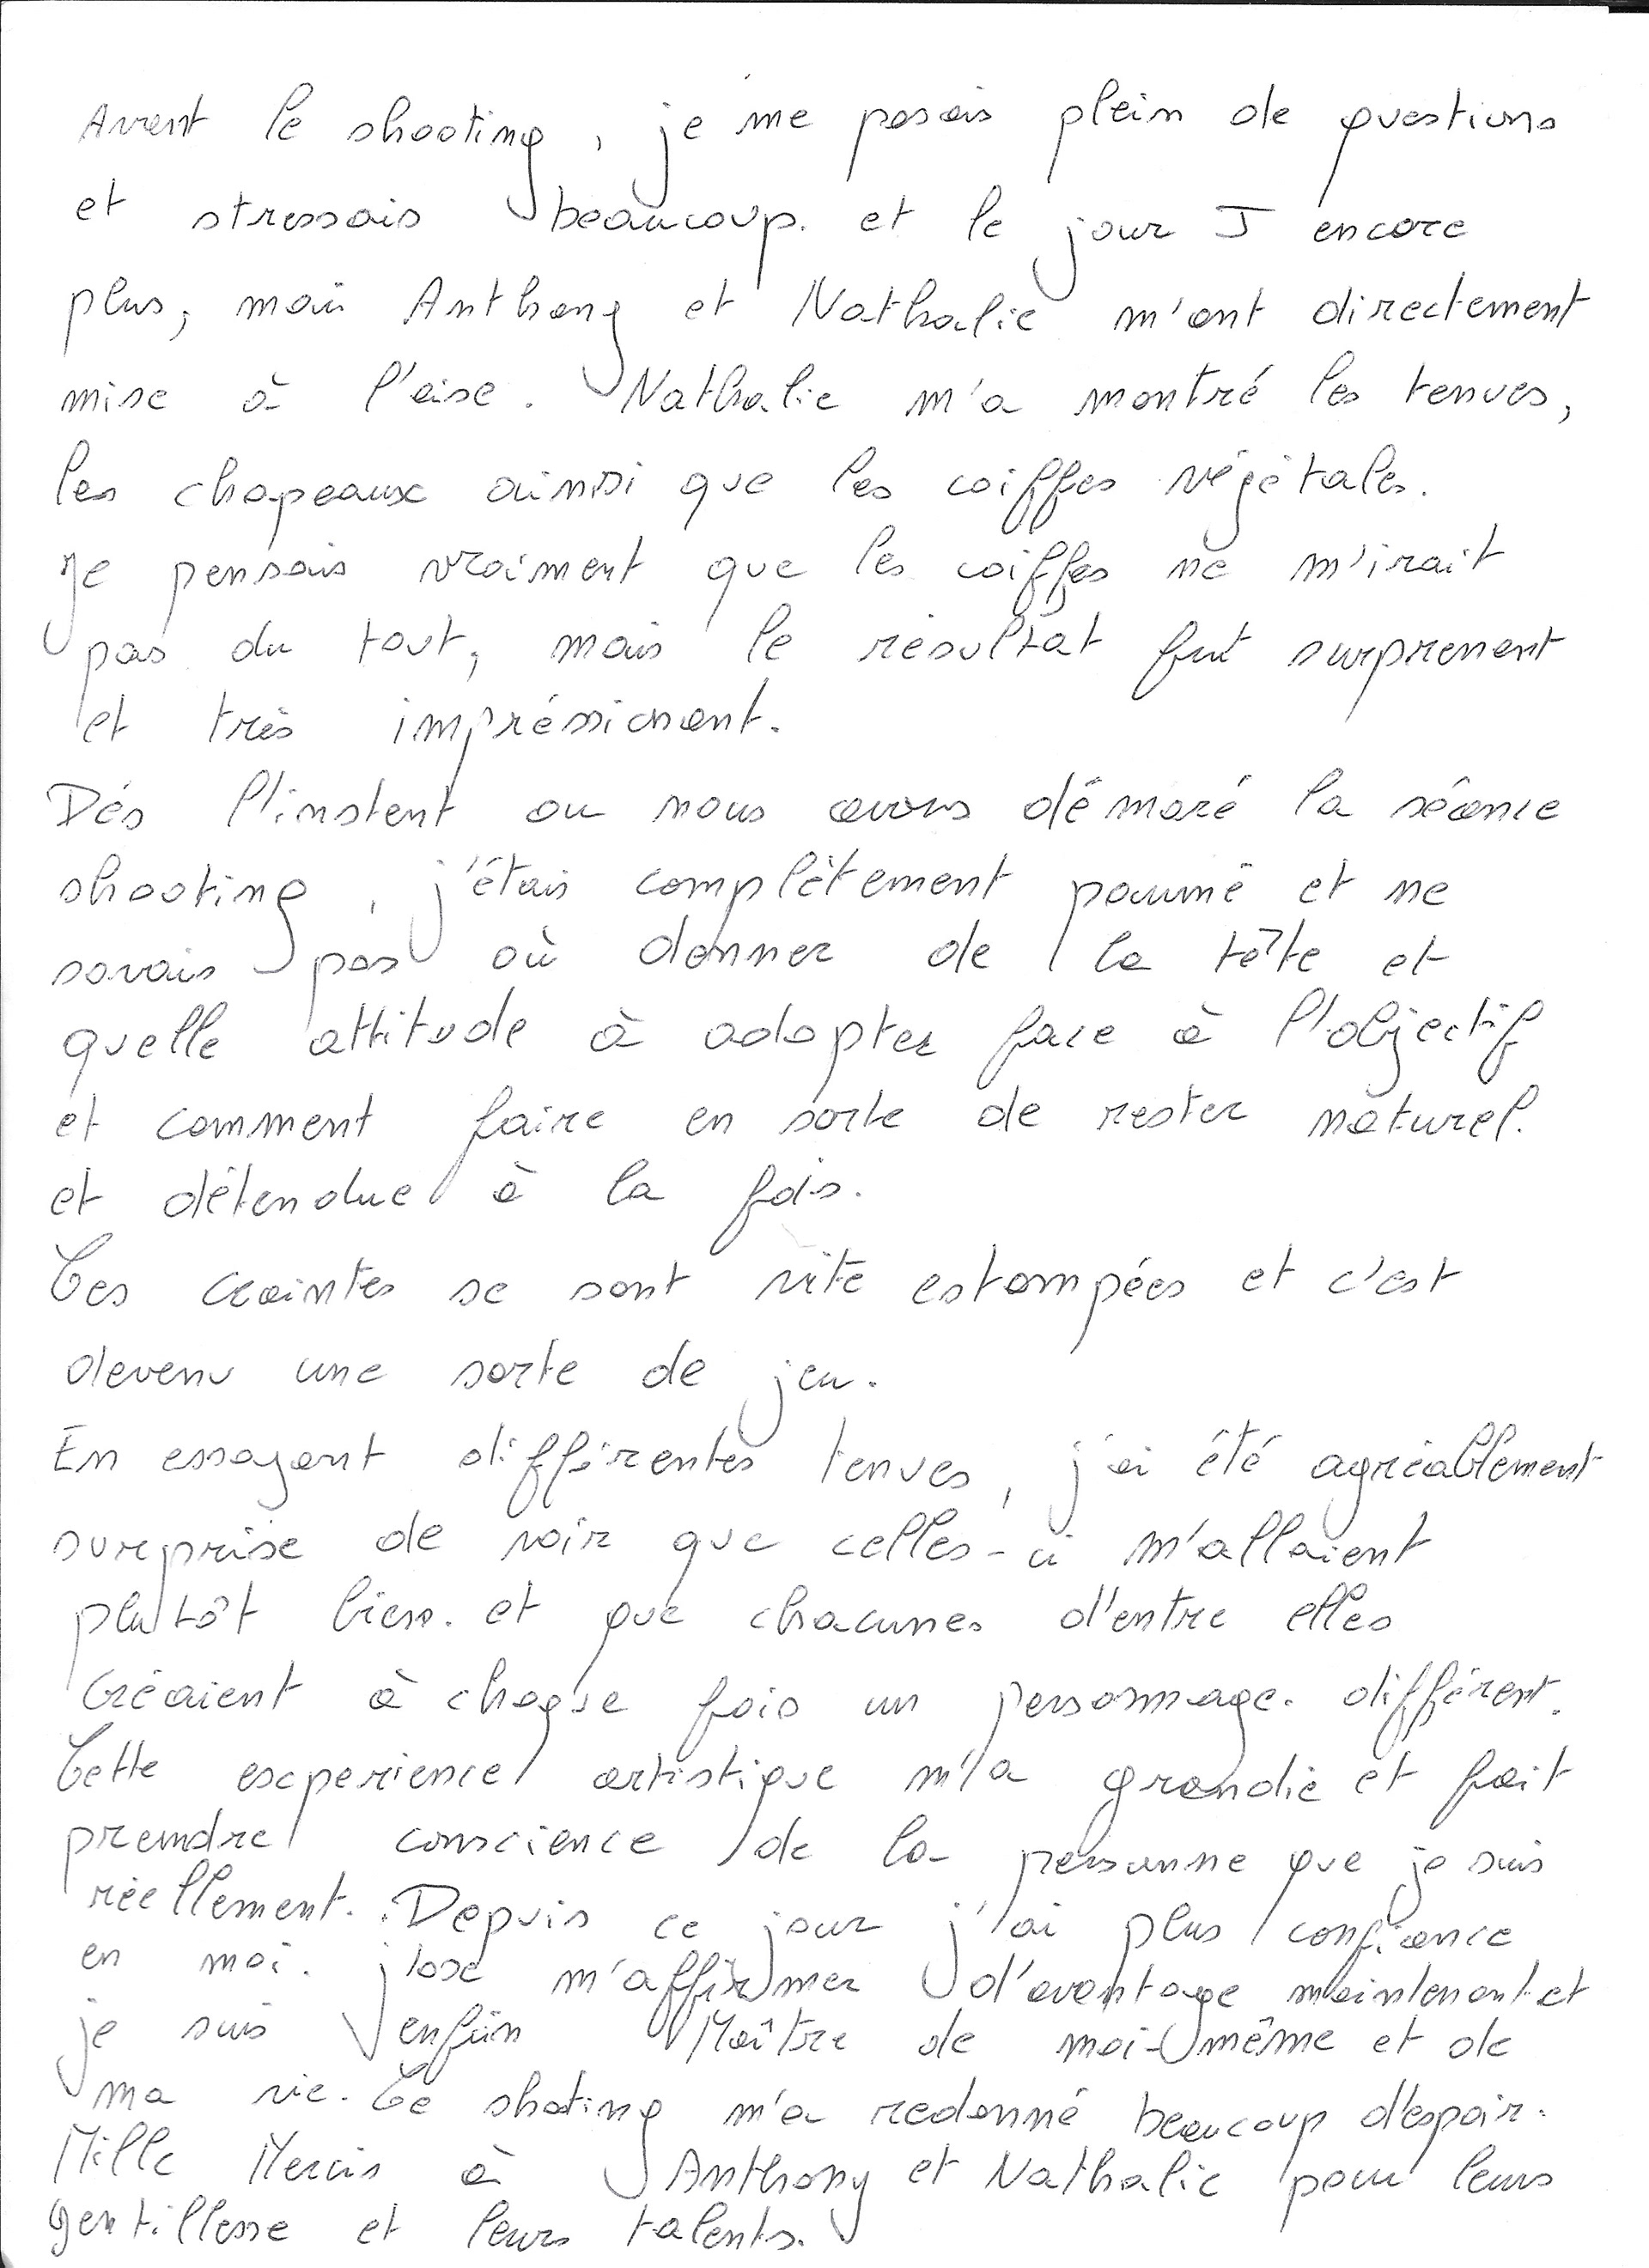 Avant le shooting, je me posais plein de questions
et stressais beaucoup. et le jour J encore
plus, mais Anthony et Nathalie m'ont directement
mise à l'aise. Nathalie m'a montré les tenues,
les chapeaux ainsi que les coiffes végétales.
Je pensais vraiment que les coiffes ne m'irait
pas du tout, mais le résultat fut surprenant
et très impréssionant.
Dés l'instant ou nous avons démaré la séance
shooting, j'étais complètement paumé et ne
savais pas où donner de la tête et
quelle attitude à adopter face à l'objectif
et comment faire en sorte de rester naturel.
et détendue à la fois.
Ces craintes se sont vite estompées et c'est
devenu une sorte de jeu.
En essayant différentes tenues, j'ai été agréablement
surprise de voir que celles-ci m'allaient
plutôt bien. et que chacunes d'entre elles
créaient à chaque fois un personnage. différent.
Cette experience artistique m'a grandie et fait
prendre conscience de la personne que je suis
réellement. Depuis ce jour j'ai plus confiance
en moi. j'ose m'affirmer d'avantage maintenant et
je suis enfin Maître de moi-même et de
ma vie. Ce shoting m'a redonné beaucoup d'espoir.
Mille Mercis à Anthony et Nathalie pour leurs
gentillesse et leurs talents.